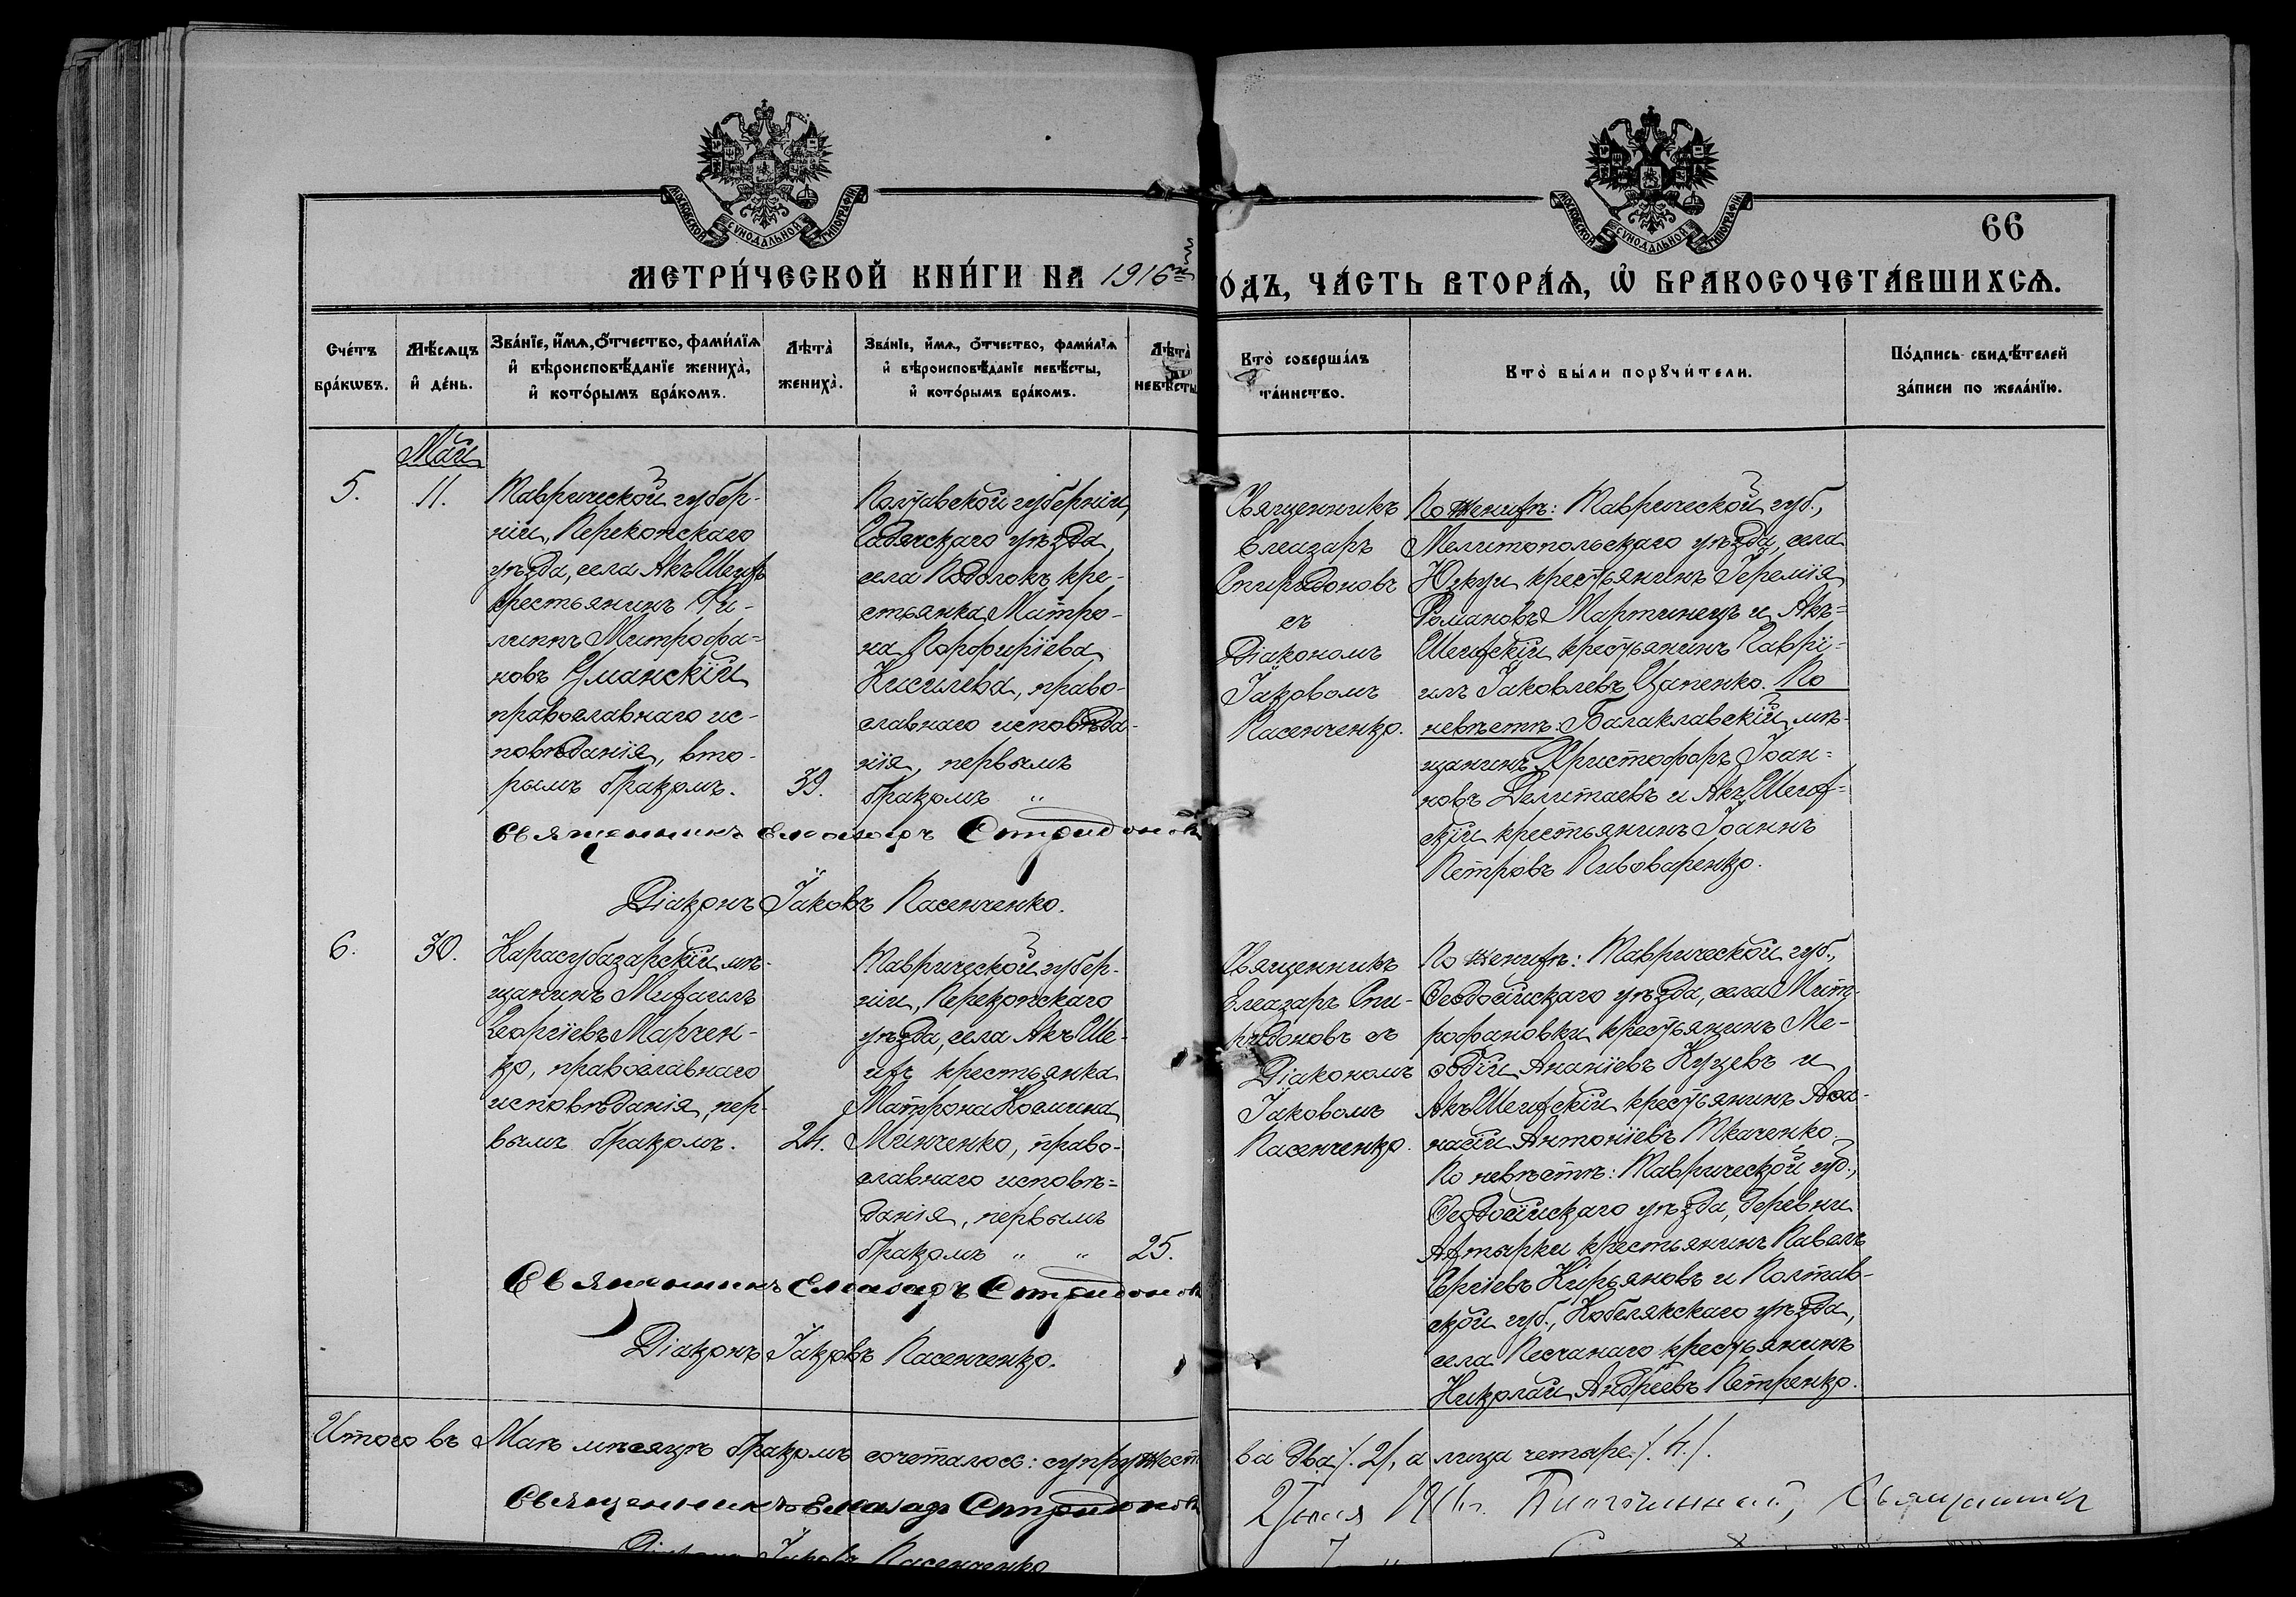 МОСКОВСКОЙ СѴНОДАЛЬНОЙ ТИПОГРАФІИ
МОСКОВСКОЙ СѴНОДАЛЬНОЙ ТИПОГРАФІИ
66
МЕТРИ́ЧЕСКОЙ КНИ́ГИ НА 1916й ГО́ДЪ, ЧА́СТЬ ВТОРА́Ѧ, Ѡ҆ БРАКОСОЧЕТА́ВШИХСѦ.
Сче́тъ
бра́кѡвъ.
Мѣ́сѧцъ
и҆ де́нь.
Зва́нїе, и҆́мѧ, ѻ҆́тчество, фами́лїѧ
и҆ вѣроисповѣ́данїе жениха̀,
и҆ кото́рымъ бра́комъ.
Лѣта̀
жениха̀.
Зва́нїе, и҆́мѧ, ѻ҆́тчество, фами́лїѧ
и҆ вѣроисповѣ́данїе невѣ́сты,
и҆ кото́рымъ бра́комъ.
Лѣта̀
невѣ́сты
Кто̀ соверша́лъ
та́инство.
Кто̀ бы́ли порꙋчи́тели.
По́дпись свидѣ́телей
за́писи по жела́нїю.
Май
5.
11.
Таврической губер-
ніи, Перекопскаго
уѣзда, села Акъ Шеихъ
крестьянинъ Фи-
липпъ Митрофа-
новъ Уманскій
православнаго ис-
повѣданія, вто-
рымъ бракомъ.
39.
Полтавской губерніи,
Гадячскаго уѣзда,
села Подолокъ кре-
стьянка Матро-
на Порфиріева
Кисилева, право-
славнаго исповѣда-
нія, первымъ
бракомъ "
Священникъ
Елеазаръ
Спиридоновъ
съ
Діакономъ
Іаковомъ
Пасенченко.
По женихѣ: Таврической губ.,
Мелитопольскаго уѣзда, села
Юзкуи крестьянинъ Іеремія
Романовъ Мартинецъ и Акъ-
Шеихскій крестьянинъ Гаврі-
илъ Іаковлевъ Цапенко. По
невѣстѣ: Балаклавскій мѣ-
щанинъ Христофоръ Іоан-
новъ Делитаевъ и АкъШеих-
скій крестьянинъ Іоаннъ
Петровъ Пивоваренко.
Священникъ Елеазаръ Спиридоновъ
Діаконъ Іаковъ Пасенченко.
6.
30.
Карасубазарскій мѣ-
щанинъ Михаилъ
Георгіевъ Марчен-
ко, православнаго
исповѣданія, пер-
вымъ бракомъ.
24.
Таврической губер-
ніи, Перекопскаго
уѣзда, села Акъ Ше-
ихъ крестьянка
Матрона Космина
Минченко, право-
славнаго исповѣ-
данія, первымъ
бракомъ " "
25.
Священникъ
Елеазаръ Спи-
ридоновъ съ
Діакономъ
Іаковомъ
Пасенченко.
По женихѣ: Таврической губ.,
Ѳеодосійскаго уѣзда, села Мит-
рофановки крестьянинъ Ме-
ѳодій Ананіевъ Куцевъ и
АкъШеихскій крестьянинъ Аѳа-
насій Антоніевъ Ткаченко.
По невѣстѣ: Таврической губ.,
Ѳеодосійскаго уѣзда, деревни
Ахтырки крестьянинъ Павелъ
Сергіевъ Кирьяновъ и Полтав-
ской губ., Кобелякскаго уѣзда,
села Песчанаго крестьянинъ
Николай Андреевъ Петренко.
Священникъ Елеазаръ Спиридоновъ
Діаконъ Іаковъ Пасенченко.
Итого въ Маѣ мѣсяцѣ бракомъ сочеталось: супружества два /.2/, а лица четыре /.4./.
Священникъ Елеазаръ Спиридоновъ
Діаконъ Іаковъ Пасенченко
2 Іюня 1916 г. Благочинный, Священникъ